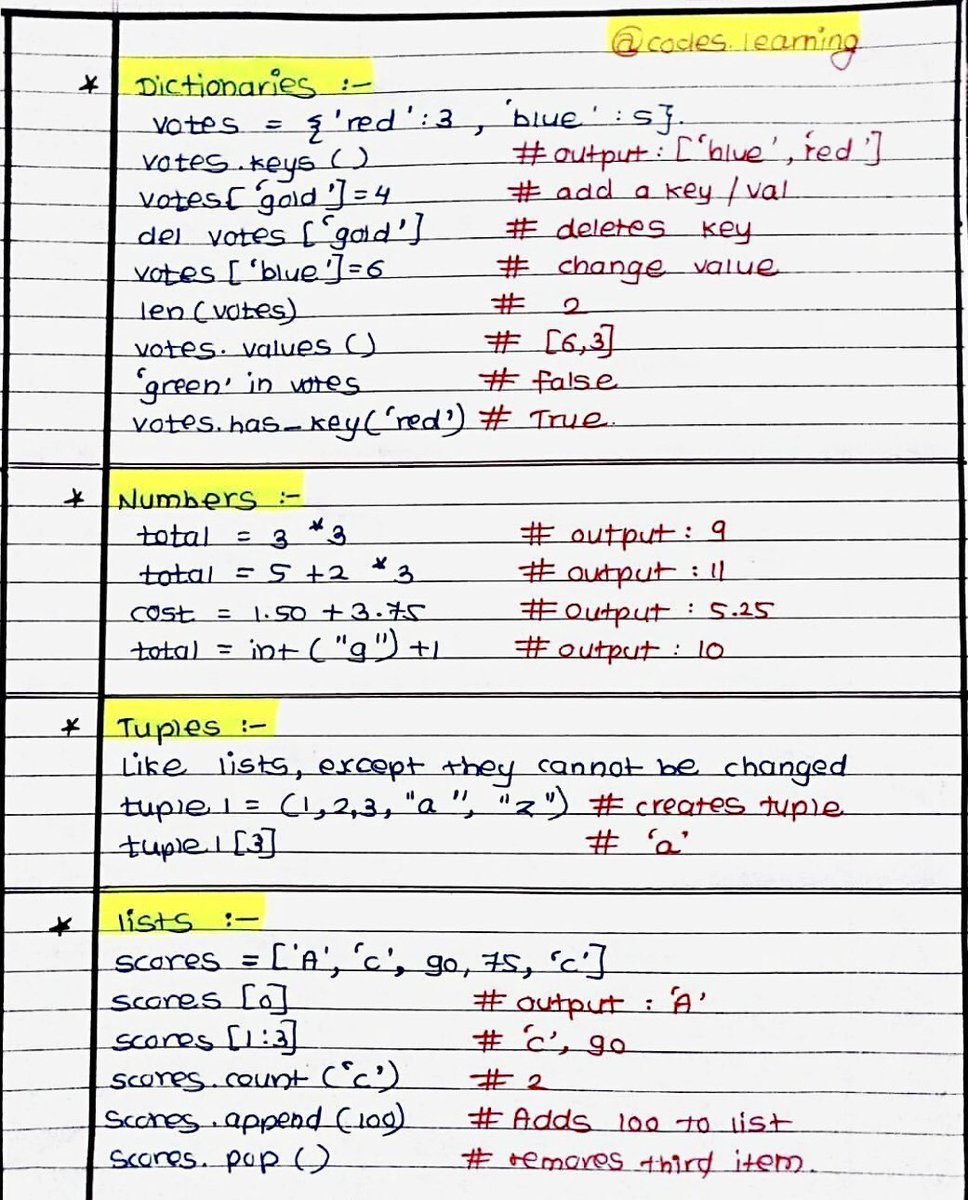 @codes.learning
* Dictionaries :-
votes = {'red':3 , 'blue' :5}.
votes.keys () # output: ['blue', 'red']
votes['gold']=4 # add a key / val
del votes ['gold'] # deletes key
votes ['blue']=6 # change value
len (votes) # 2
votes. values () # [6,3]
'green' in votes # false
votes.has_key('red') # True.
* Numbers :-
total = 3 *3 # output : 9
total = 5 +2 *3 # output : 11
cost = 1.50 + 3.75 # output : 5.25
total = int ("9") +1 # output : 10
* Tuples :-
Like lists, except they cannot be changed
tuple 1 = (1,2,3, "a", "z") # creates tuple
tuple 1 [3] # 'a'
* lists :-
scores = ['A', 'c', 90, 75, 'c']
scores [0] # output : 'A'
scores [1:3] # 'c', 90
scores.count ('c') # 2
scores.append (100) # Adds 100 to list
scores. pop () # removes third item.